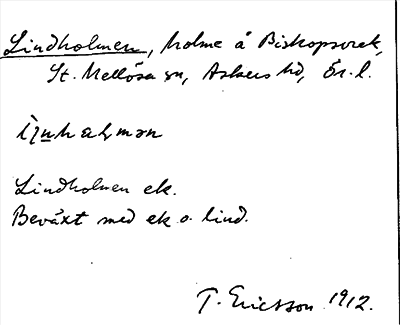 Lindholmen, holme å Biskopsvrek,
St. Mellösa sn, Askers hd, Ör. l.
Lindholmen ek.
Beväxt med ek o. lind.
T. Ericsson 1912.